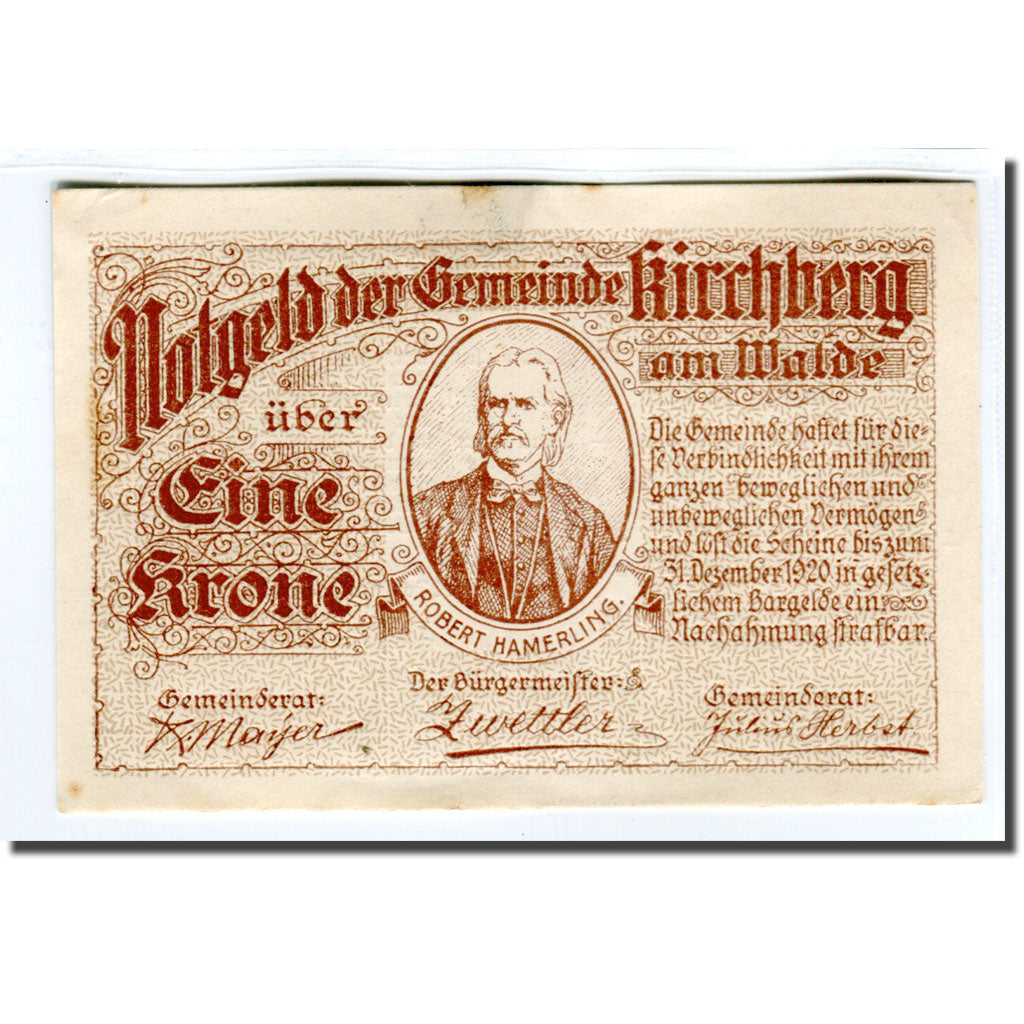 Notgeld der Gemeinde Kirchberg
am Walde
über
Eine
Krone
ROBERT HAMERLING.
Die Gemeinde haftet für die-
se Verbindlichkeit mit ihrem
ganzen beweglichen und
unbeweglichen Vermögen
und löst die Scheine bis zum
31. Dezember 1920 in gesetz-
lichem Bargelde ein.
Nachahmung strafbar.
Gemeinderat:
K. Mayer
Der Bürgermeister:
Zwettler
Gemeinderat:
Julius Herbst